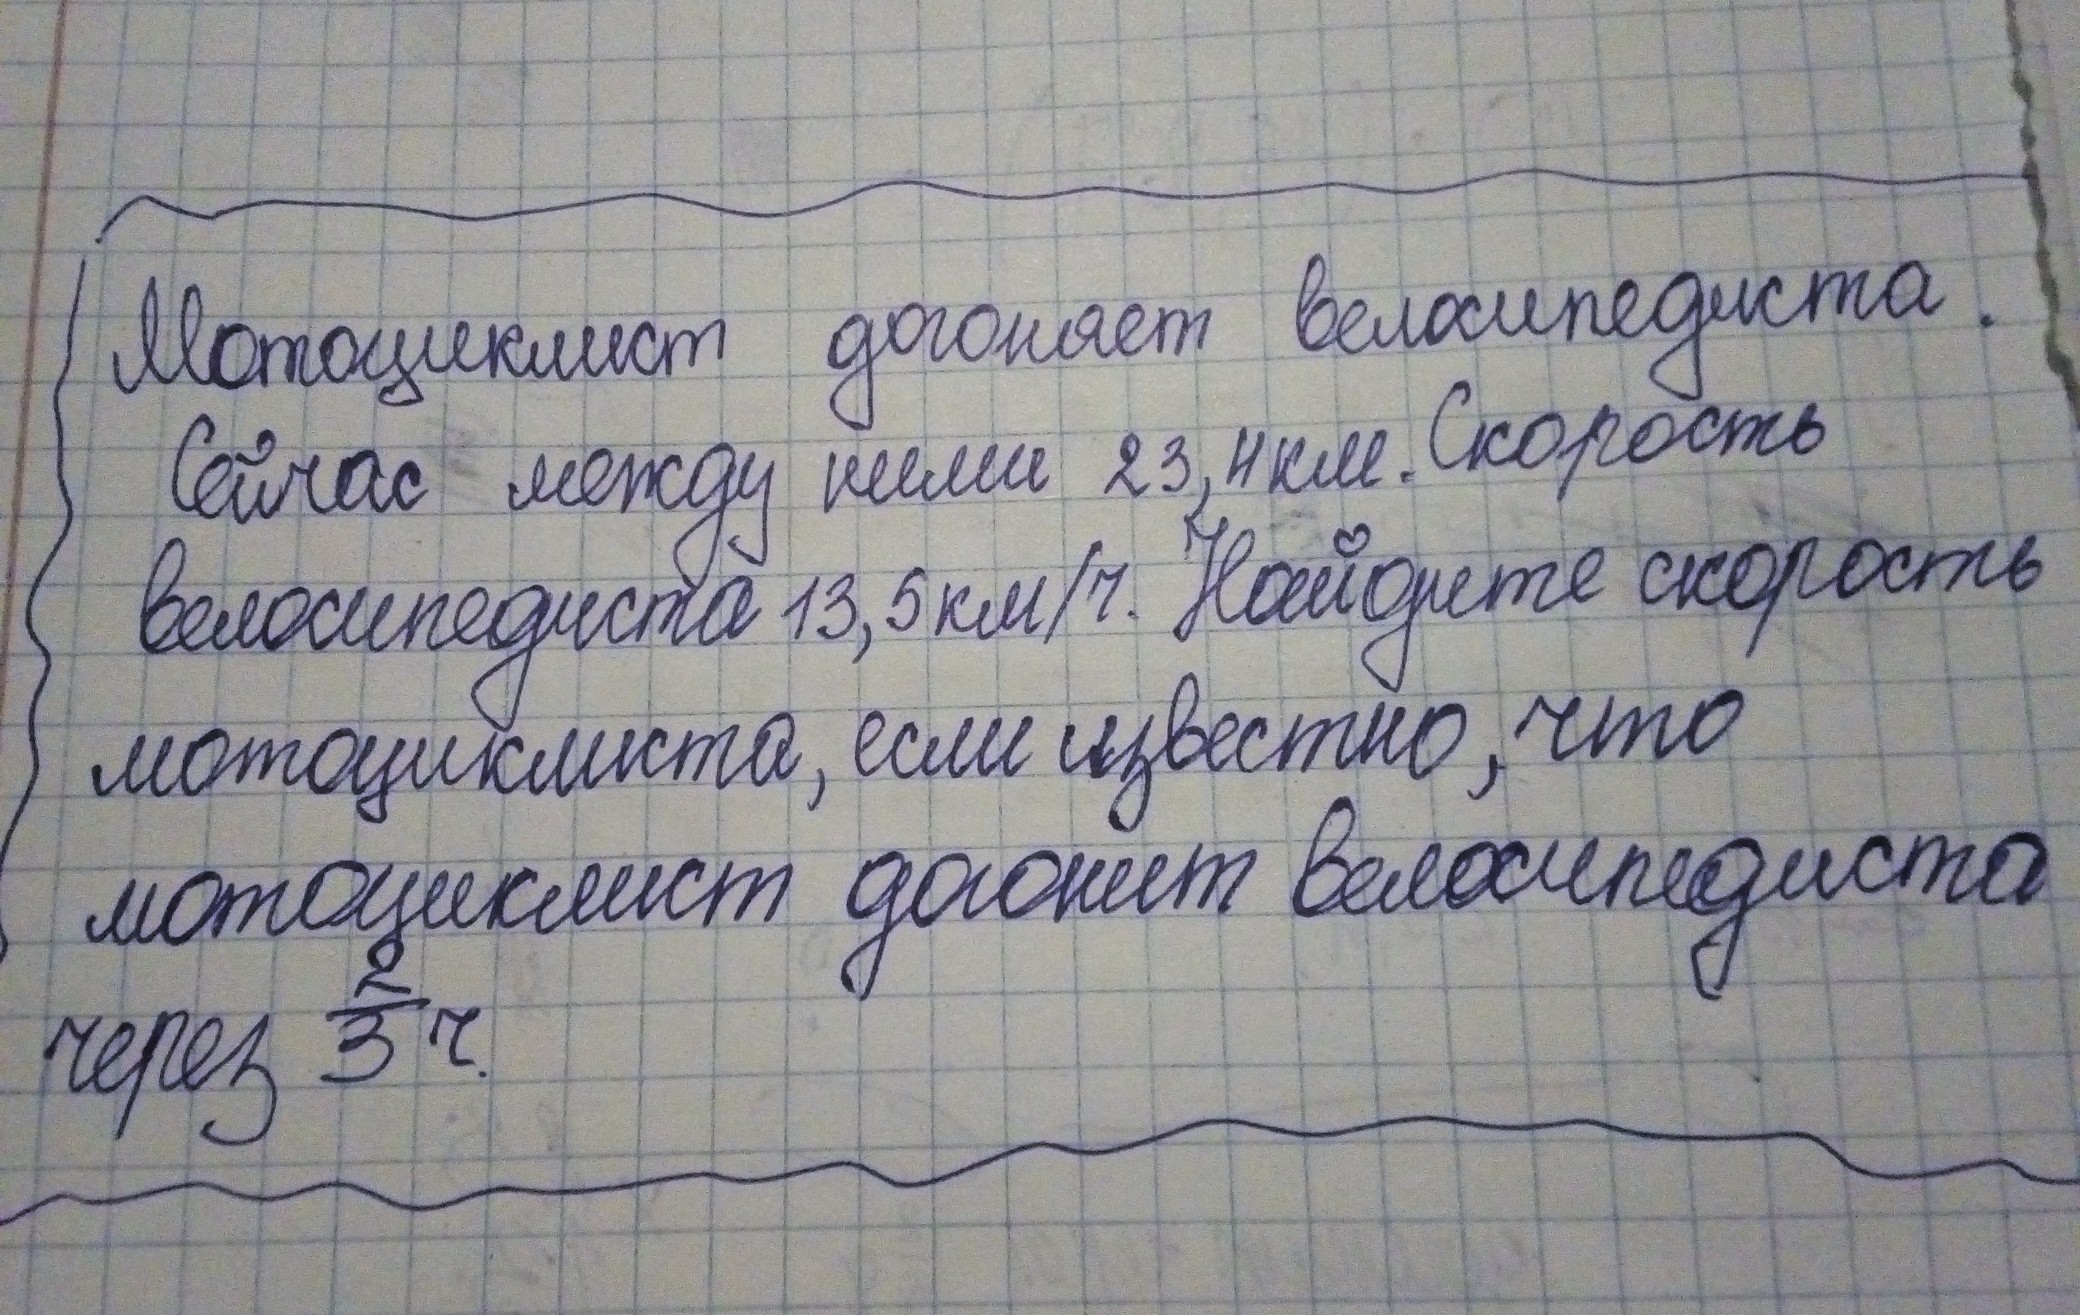 Мотоциклист догоняет велосипедиста.
Сейчас между ними 23,4 км. Скорость
велосипедиста 13,5 км/ч. Найдите скорость
мотоциклиста, если известно, что
мотоциклист догонит велосипедиста
через 2/3 ч.